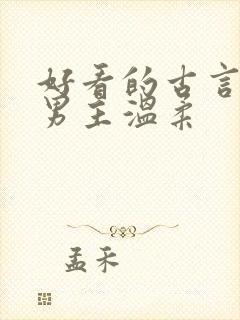 好看的古言
男主温柔
孟禾